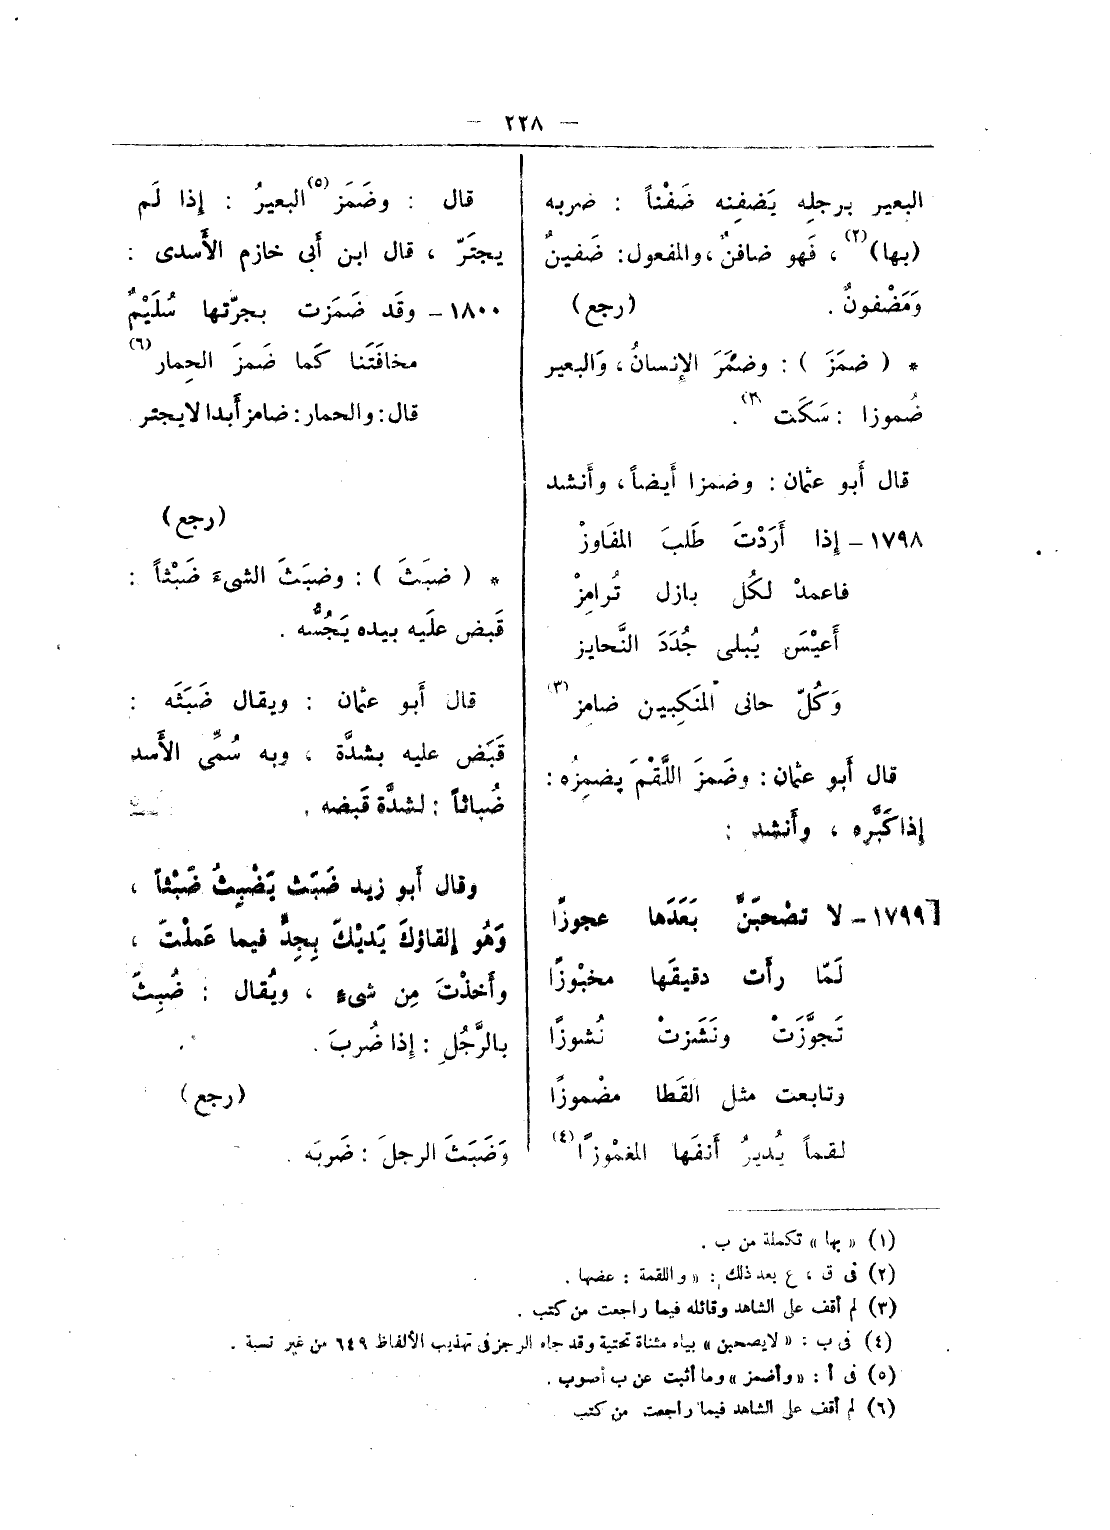 — ٢٢٨ —
البعير برجلِه يَضفِنه ضَفْناً : ضربه
(بها)(٢) ، فَهو ضافنٌ ، والمفعول: ضَفينٌ
وَمَضْفونٌ . (رجع)
* ( ضمَزَ ) : وضَمَزَ الإنسانُ ، وَالبعير
ضُموزا : سَكَت (٣) .
قال أَبو عثمان : وضمزا أَيضاً ، وأَنشد
١٧٩٨ – إذا أَرَدْتَ طَلبَ المفَاوزْ
فاعمدْ لكُل بازل تُرامِزْ
أَعيْسَ يُبلى جُدَدَ النَّحايز
وَكُلّ حانى المَنكِبين ضامِز (٣)
قال أَبو عثمان : وضَمزَ اللَّقْمَ يضمِزُه :
إذا كَبَّره ، وأَنشد :
١٧٩٩ – لا تصْحبَنَّ بَعَدَها عجوزًا
لَمّا رأَت دقيقَها مخبْوزًا
تَجوَّزَتْ ونَشَزتْ نُشوزًا
وتابعت مثل القَطا مضْموزًا
لقماً يُديرُ أَنفَها المغمْوزًا (٤)
قال : وضَمَز (٥) البعيرُ : إذا لَم
يجتَرّ ، قال ابن أَبى خازم الأَسدى :
١٨٠٠ – وقَد ضَمَزت بجرّتها سُلَيْمٌ
مخافَتَنا كَما ضَمزَ الحِمار (٦)
قال : والحمار : ضامز أَبدا لايجتر .
(رجع)
* ( ضبَثَ ) : وضبَثَ الشىءَ ضَبْثاً :
قَبض علَيه بيده يَجُسُّه .
قال أَبو عثمان : ويقال ضَبَثَه :
قَبَض عليه بشدَّة ، وبه سُمِّى الأَسد
ضُباثاً : لشدَّة قَبضه .
وقال أَبو زيد ضَبَث يَضْبِثُ ضَبْثاً ،
وَهُو إلقاؤكَ يَديْكَ بِجِدٍّ فيما عَملْتَ ،
وأَخذْتَ مِن شىءٍ ، ويُقال : ضُبِثَ
بالرَّجُلِ : إذا ضُربَ .
(رجع)
وَضَبَثَ الرجلَ : ضَربَه .
(١) « بها » تكملة من ب .
(٢) فى ق ، ع بعد ذلك : « واللقمة : عضها .
(٣) لم أقف على الشاهد وقائله فيما راجعت من كتب .
(٤) فى ب : « لايصحبن » بياء مثناة تحتية وقد جاء الرجز فى تهذيب الألفاظ ٦٤٩ من غير نسبة .
(٥) فى أ : « وأضمز » وما أثبت عن ب أصوب .
(٦) لم أقف على الشاهد فيما راجعت من كتب